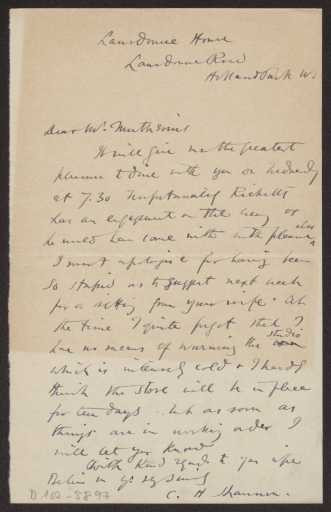 Lansdowne House
Lansdowne Road
Holland Park W.
Dear Mr
It will give me the greatest
pleasure to dine with you on Wednesday
at 7.30 Unfortunately Ricketts
has an engagement on that evening or
he would have come with with pleasure
also
I must apologise for having been
so stupid as to suggest next week
for a sitting from your wife. At
the time I quite forgot that I
have no means of warming the studio
which is intensely cold & I hardly
think the stove will be in place
for ten days. but as soon as
things are in working order I
will let you know
With kind regards to your wife
Believe me yrs sincerely
C. H Shannon.